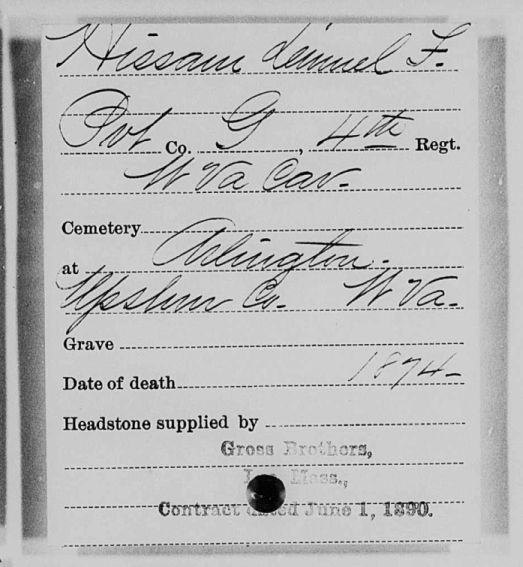 Hissam Lemuel F.
Pvt Co. G, 4th Regt.
W Va Cav.
Cemetery
at Arlington.
Upshur Co. W Va.
Grave
Date of death 1874
Headstone supplied by
Gross Brothers,
Mass.,
Contract dated June 1, 1890.